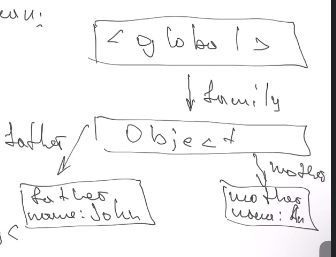 <globals>
family
Object
father
mother
father
name: John
mother
name: An